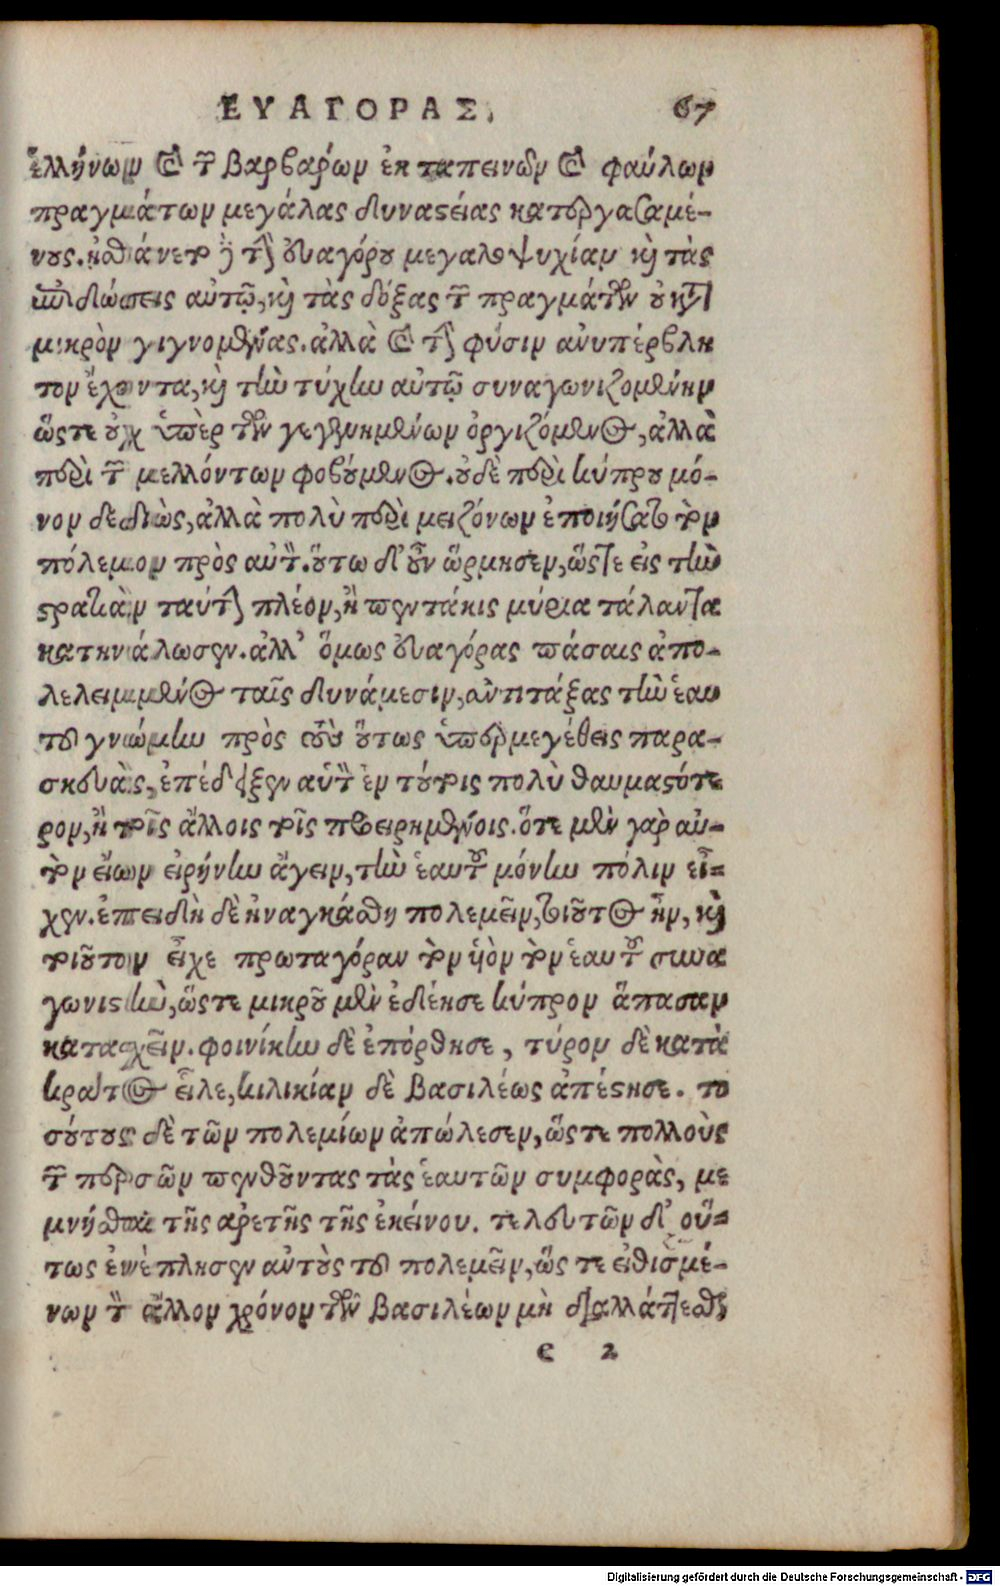 ΕΥΑΓΟΡΑΣ. 67
ἑλλήνων καὶ τῶν βαρβάρων ἐκ ταπεινῶν καὶ φαύλων
πραγμάτων μεγάλας δυναστείας κατεργασαμέ-
νους. ᾐσθάνετο δὲ τὴν εὐαγόρου μεγαλοψυχίαν καὶ τὰς
ἐπιδόσεις αὐτῷ, καὶ τὰς δόξας τῶν πραγμάτων οὐ κατὰ
μικρὸν γιγνομένας. ἀλλὰ καὶ τὴν φύσιν ἀνυπέρβλη
τον ἔχοντα, καὶ τὴν τύχην αὐτῷ συναγωνιζομένην
ὥστε οὐχ ὑπὲρ τῶν γεγενημένων ὀργιζόμενος, ἀλλὰ
περὶ τῶν μελλόντων φοβούμενος. οὐδὲ περὶ κύπρου μό-
νον δεδιὼς, ἀλλὰ πολὺ περὶ μειζόνων ἐποιήσατο τὸν
πόλεμον πρὸς αὐτόν. οὕτω δ' οὖν ὥρμησεν, ὥστε εἰς τὴν
στρατιὰν ταύτην πλέον, ἢ πεντάκις μύρια τάλαντα
κατηνάλωσεν. ἀλλ' ὅμως εὐαγόρας πάσαις ἀπο-
λελειμμένος ταῖς δυνάμεσιν, ἀντιτάξας τὴν ἑαυ
τοῦ γνώμην πρὸς τὰς οὕτως ὑπερμεγέθεις παρα-
σκευὰς, ἐπέδειξεν αὑτὸν ἐν τούτοις πολὺ θαυμαστότε
ρον, ἢ τοῖς ἄλλοις τοῖς προειρημένοις. ὅτε μὲν γὰρ αὐ-
τὸν εἴων εἰρήνην ἄγειν, τὴν ἑαυτοῦ μόνην πόλιν εἶ-
χεν. ἐπειδὴ δὲ ἠναγκάσθη πολεμεῖν, τοιοῦτος ἦν, καὶ
τοιοῦτον εἶχε πρωταγόραν τὸν ὑὸν τὸν ἑαυτοῦ συνα
γωνιστὴν, ὥστε μικροῦ μὲν ἐδέησε κύπρον ἅπασαν
κατασχεῖν. φοινίκην δὲ ἐπόρθησε, τύρον δὲ κατὰ
κράτος εἷλε, κιλικίαν δὲ βασιλέως ἀπέστησε. το
σούτους δὲ τῶν πολεμίων ἀπώλεσεν, ὥστε πολλοὺς
τῶν περσῶν πενθοῦντας τὰς ἑαυτῶν συμφορὰς, με
μνῆσθαι τῆς ἀρετῆς τῆς ἐκείνου. τελευτῶν δ' οὕ-
τως ἐνέπλησεν αὐτοὺς τοῦ πολεμεῖν, ὥστε εἰθισμέ-
νων τὸν ἄλλον χρόνον τῶν βασιλέων μὴ διαλλάττεσθαι
e 2
Digitalisierung gefördert durch die Deutsche Forschungsgemeinschaft - DFG